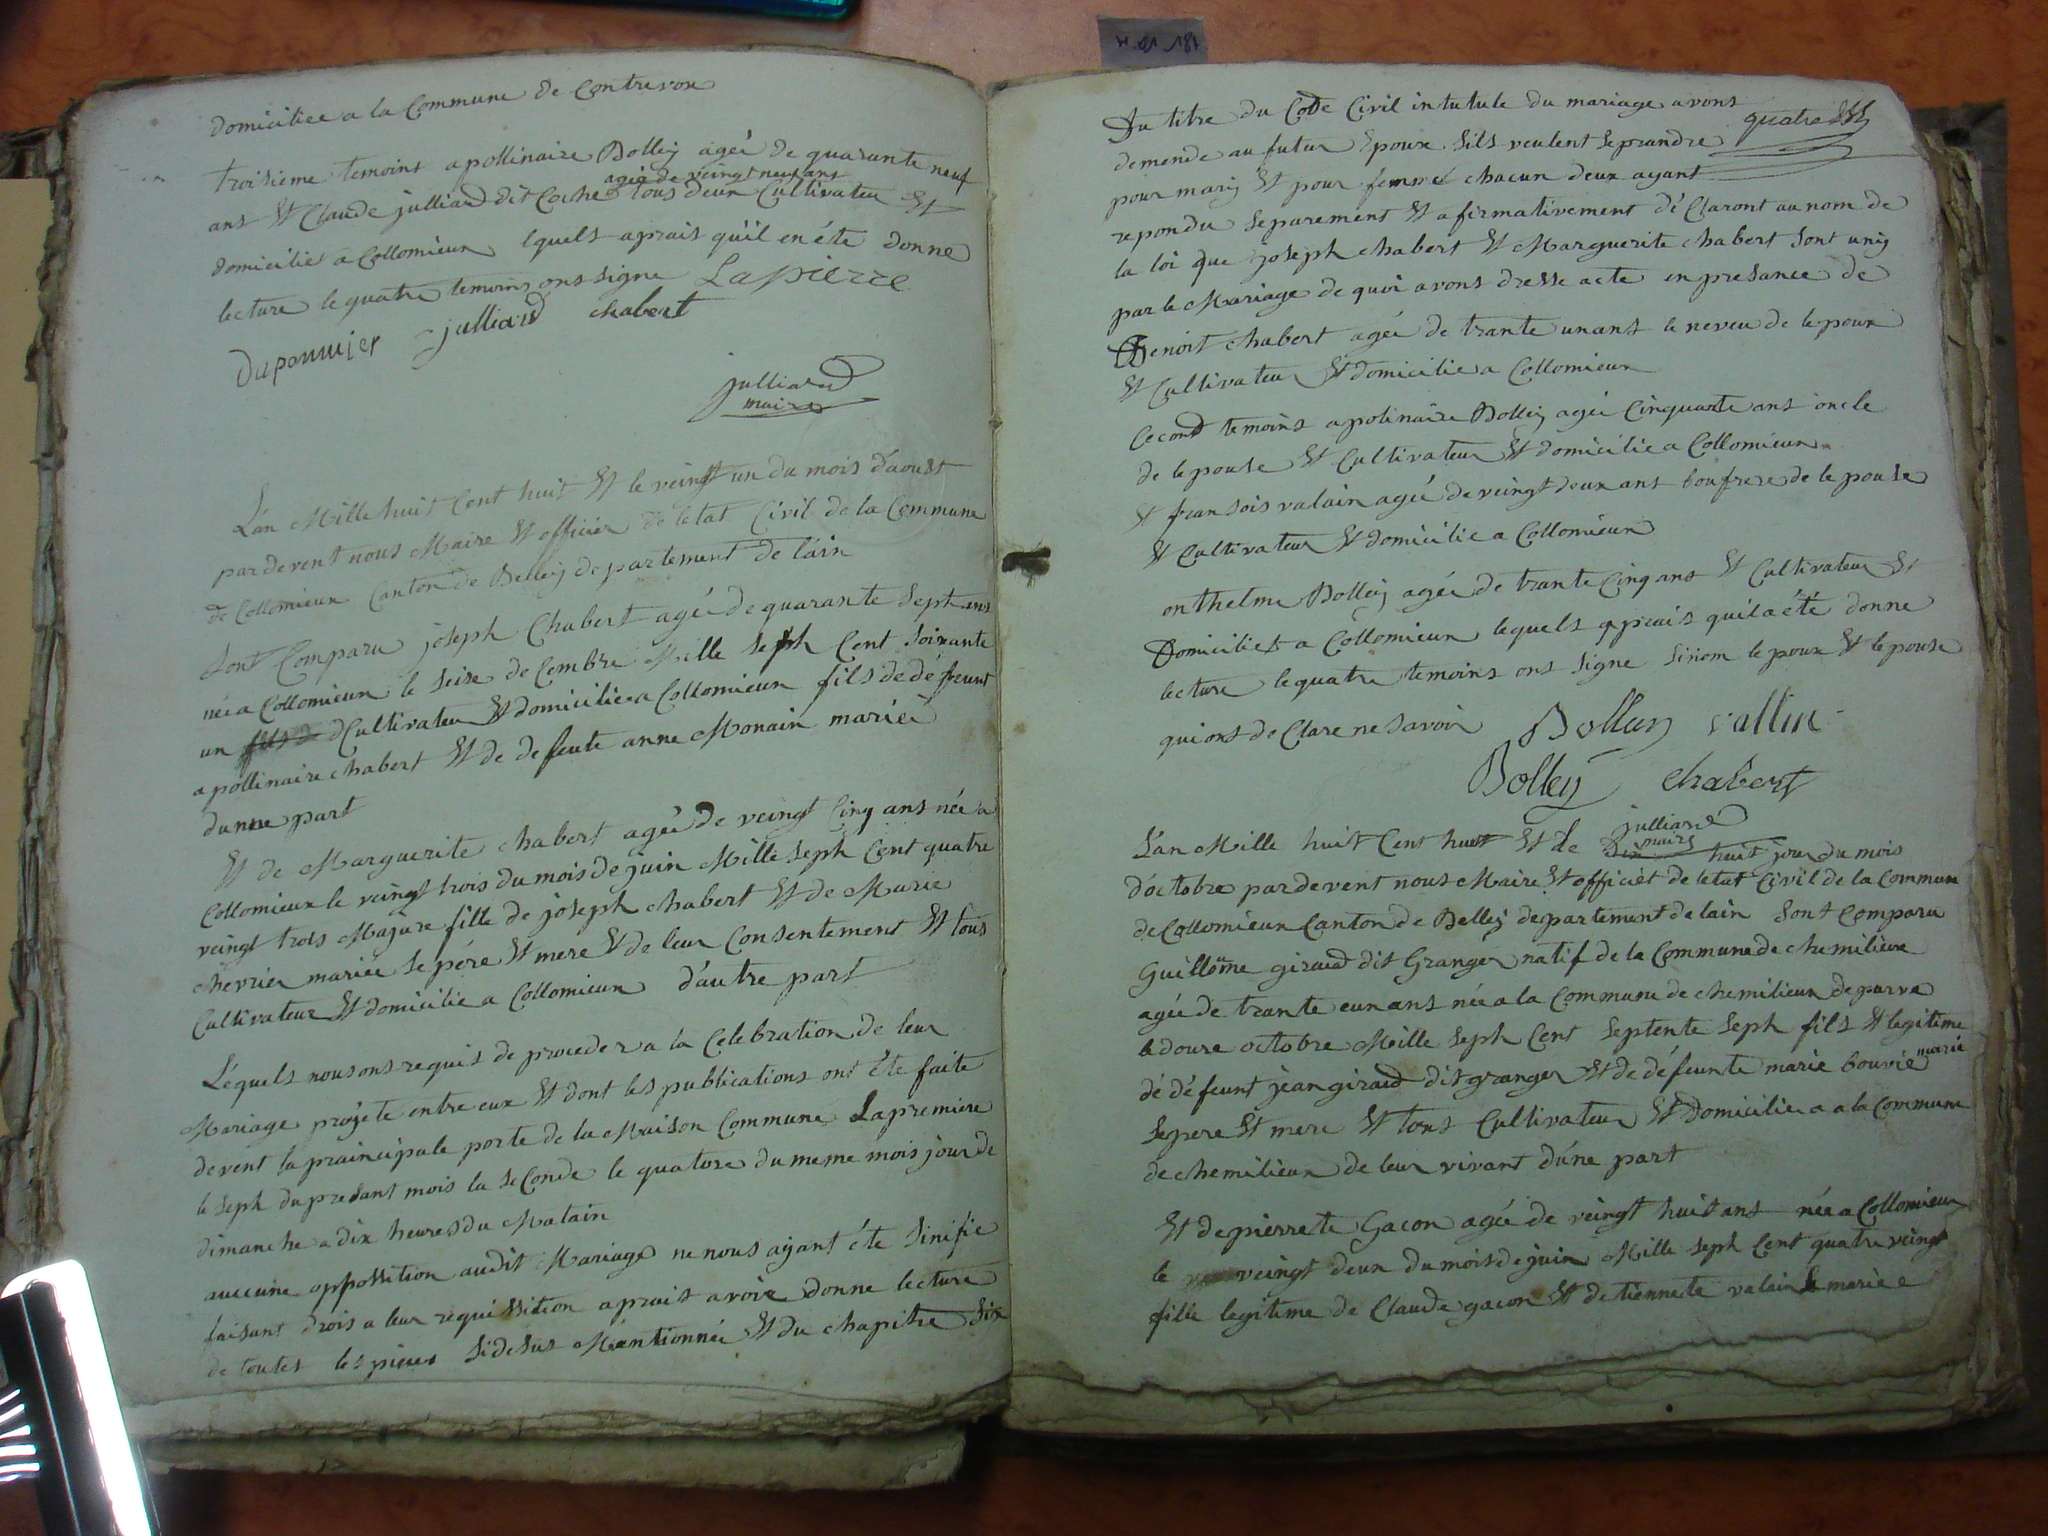 domiciliee a la Commune de Contrevou
troisieme temoins apollinaire Bolley ageé de quarante neuf
ageé de veingt neuf ans
ans Et Claude julliard dit Coche tous deux Cultivateu Et
domicilié a Collomieux lquels aprais qu'il en éte donne
lecture le quatre temoins ons signe LaPierre
Duponmier julliard chabert
julliard
maire
L'an Mille huit Cent huit Et le veingt un du mois d'aoust
par devent nous Maire Et officier de letat Civil de la Commune
de Collomieux Canton de Belley departement de l'ain
sont Comparu joseph Chabert ageé de quarante sept ans
née a Collomieux le seise de Cembre Mille seph Cent soixante
un Cultivateu Et domiciliéa Collomieux fils de défeunt
apollinaire chabert Et de defeute anne Monain mariéé
dunne part
Et de Marguerite chabert ageé de veingt Cinq ans née a
Collomieux le veingt trois du mois de juin Mille seph Cent quatre
veingt trois Majure fille de joseph chabert Et de Marie
chevrier mariée se pére Et mere Et de leur Consentement Et tous
Cultivateur Et domicilie a Collomieux d'autre part
Léquels nous ons requis de proceder a la Celebration de leur
Mariage projete entre eux Et dont les publications ont éte faite
devent la praincipale porte de la Maison Commune La premiere
le seph du presant mois la seConde le quatore du meme mois jour de
dimanche a dix heures du Matain
auccune oppossition audit Mariage ne nous ajant éte sinifie
faisant drois a leur requissition aprais avoir donne lecture
de toutes les pieces sidesus Mantionnée Et du chapitre six
Du titre du Code Civil intutule du mariage avons
quatre
demende au futur Epoux sils veulent se prandre
pour mariy Et pour femme chacun deux ayant
repondu separement Et afirmativement déClaront au nom de
la loi que joseph chabert Et Marguerite chabert sont uniy
par le Mariage de quoi avons dresse acte en presance de
Benoit chabert ageé de trante un ans le neveu de lepoux
Et Cultivateu Et domicilie a Collomieux
Cecond temoins apolinaire Bolley ageé Cinquante ans oncle
de lepouse Et Cultivateu Et domicilie a Collomieux
Et fransois valain ageé de veingt deux ans boufrere de lepouse
Et Cultivateu Et domicilie a Collomieux
onthelme Bolley ageé de trante Cinq ans Et Cultivateu Et
Domiciliet a Collomieux lequels aprais quil a été donne
lecture le quatre temoins ons signe sinom lepoux Et lepouse
qui ons de Clare ne savoir Bolley vallin
Bolley chabert
julliard
maire
L'an Mille huit Cent huit Et le Dix huit jour du mois
d'octobre par devent nous Maire Et officiét de letat Civil de la Commune
de Collomieux Canton de Belley departement de lain sont Comparu
Guillôme giraud dit Granger natif de la Commune de chemilieux
ageé de trante eun ans née a la Commune de chemilieux de parve
le doure octobre Meille seph Cent septente seph fils Et legitime
dé défeunt jean giraud dit granger Et de défeunte marie bouvié marié
se pere Et mere Et tous Cultivateu Et Domicilie a a la Commune
de chemilieux de leur vivant d'une part
Et de pierrete Gacon ageé de veingt huit ans née a Collomieux
le veingt deux du mois de juin Mille seph Cent quatre veingt
fille legitime de Claude gacon Et detiennete valain mariée